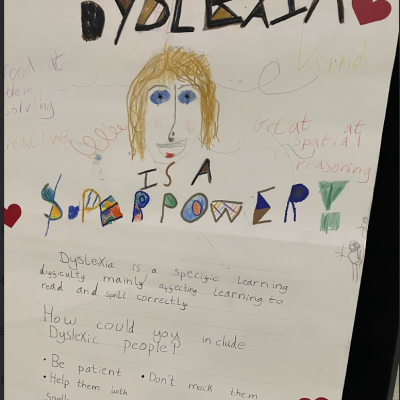 DYSLEXIA
Kind
Good at
solving
creative
Great at
spatial
reasoning
IS A
SUPPOWER!
Dyslexia is a specific learning
difficulty mainly affecting learning to
read and spell correctly
How could you include
Dyslexic people?
• Be patient • Don't mock them
• Help them with
Spelli